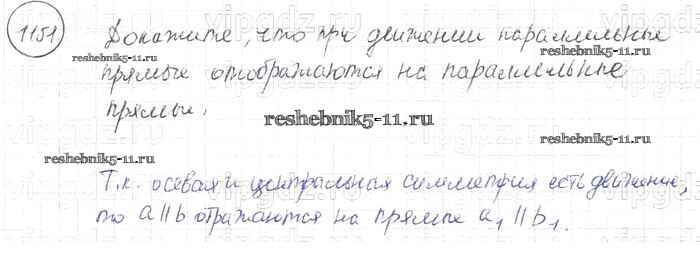 1151 Докажите, что при движении параллельные
прямые отображаются на параллельные
прямые.
reshebnik5-11.ru
reshebnik5-11.ru
reshebnik5-11.ru
reshebnik5-11.ru
Т.к. осевая и центральная симметрия есть движение,
то a||b отражаются на прямые a₁||b₁.